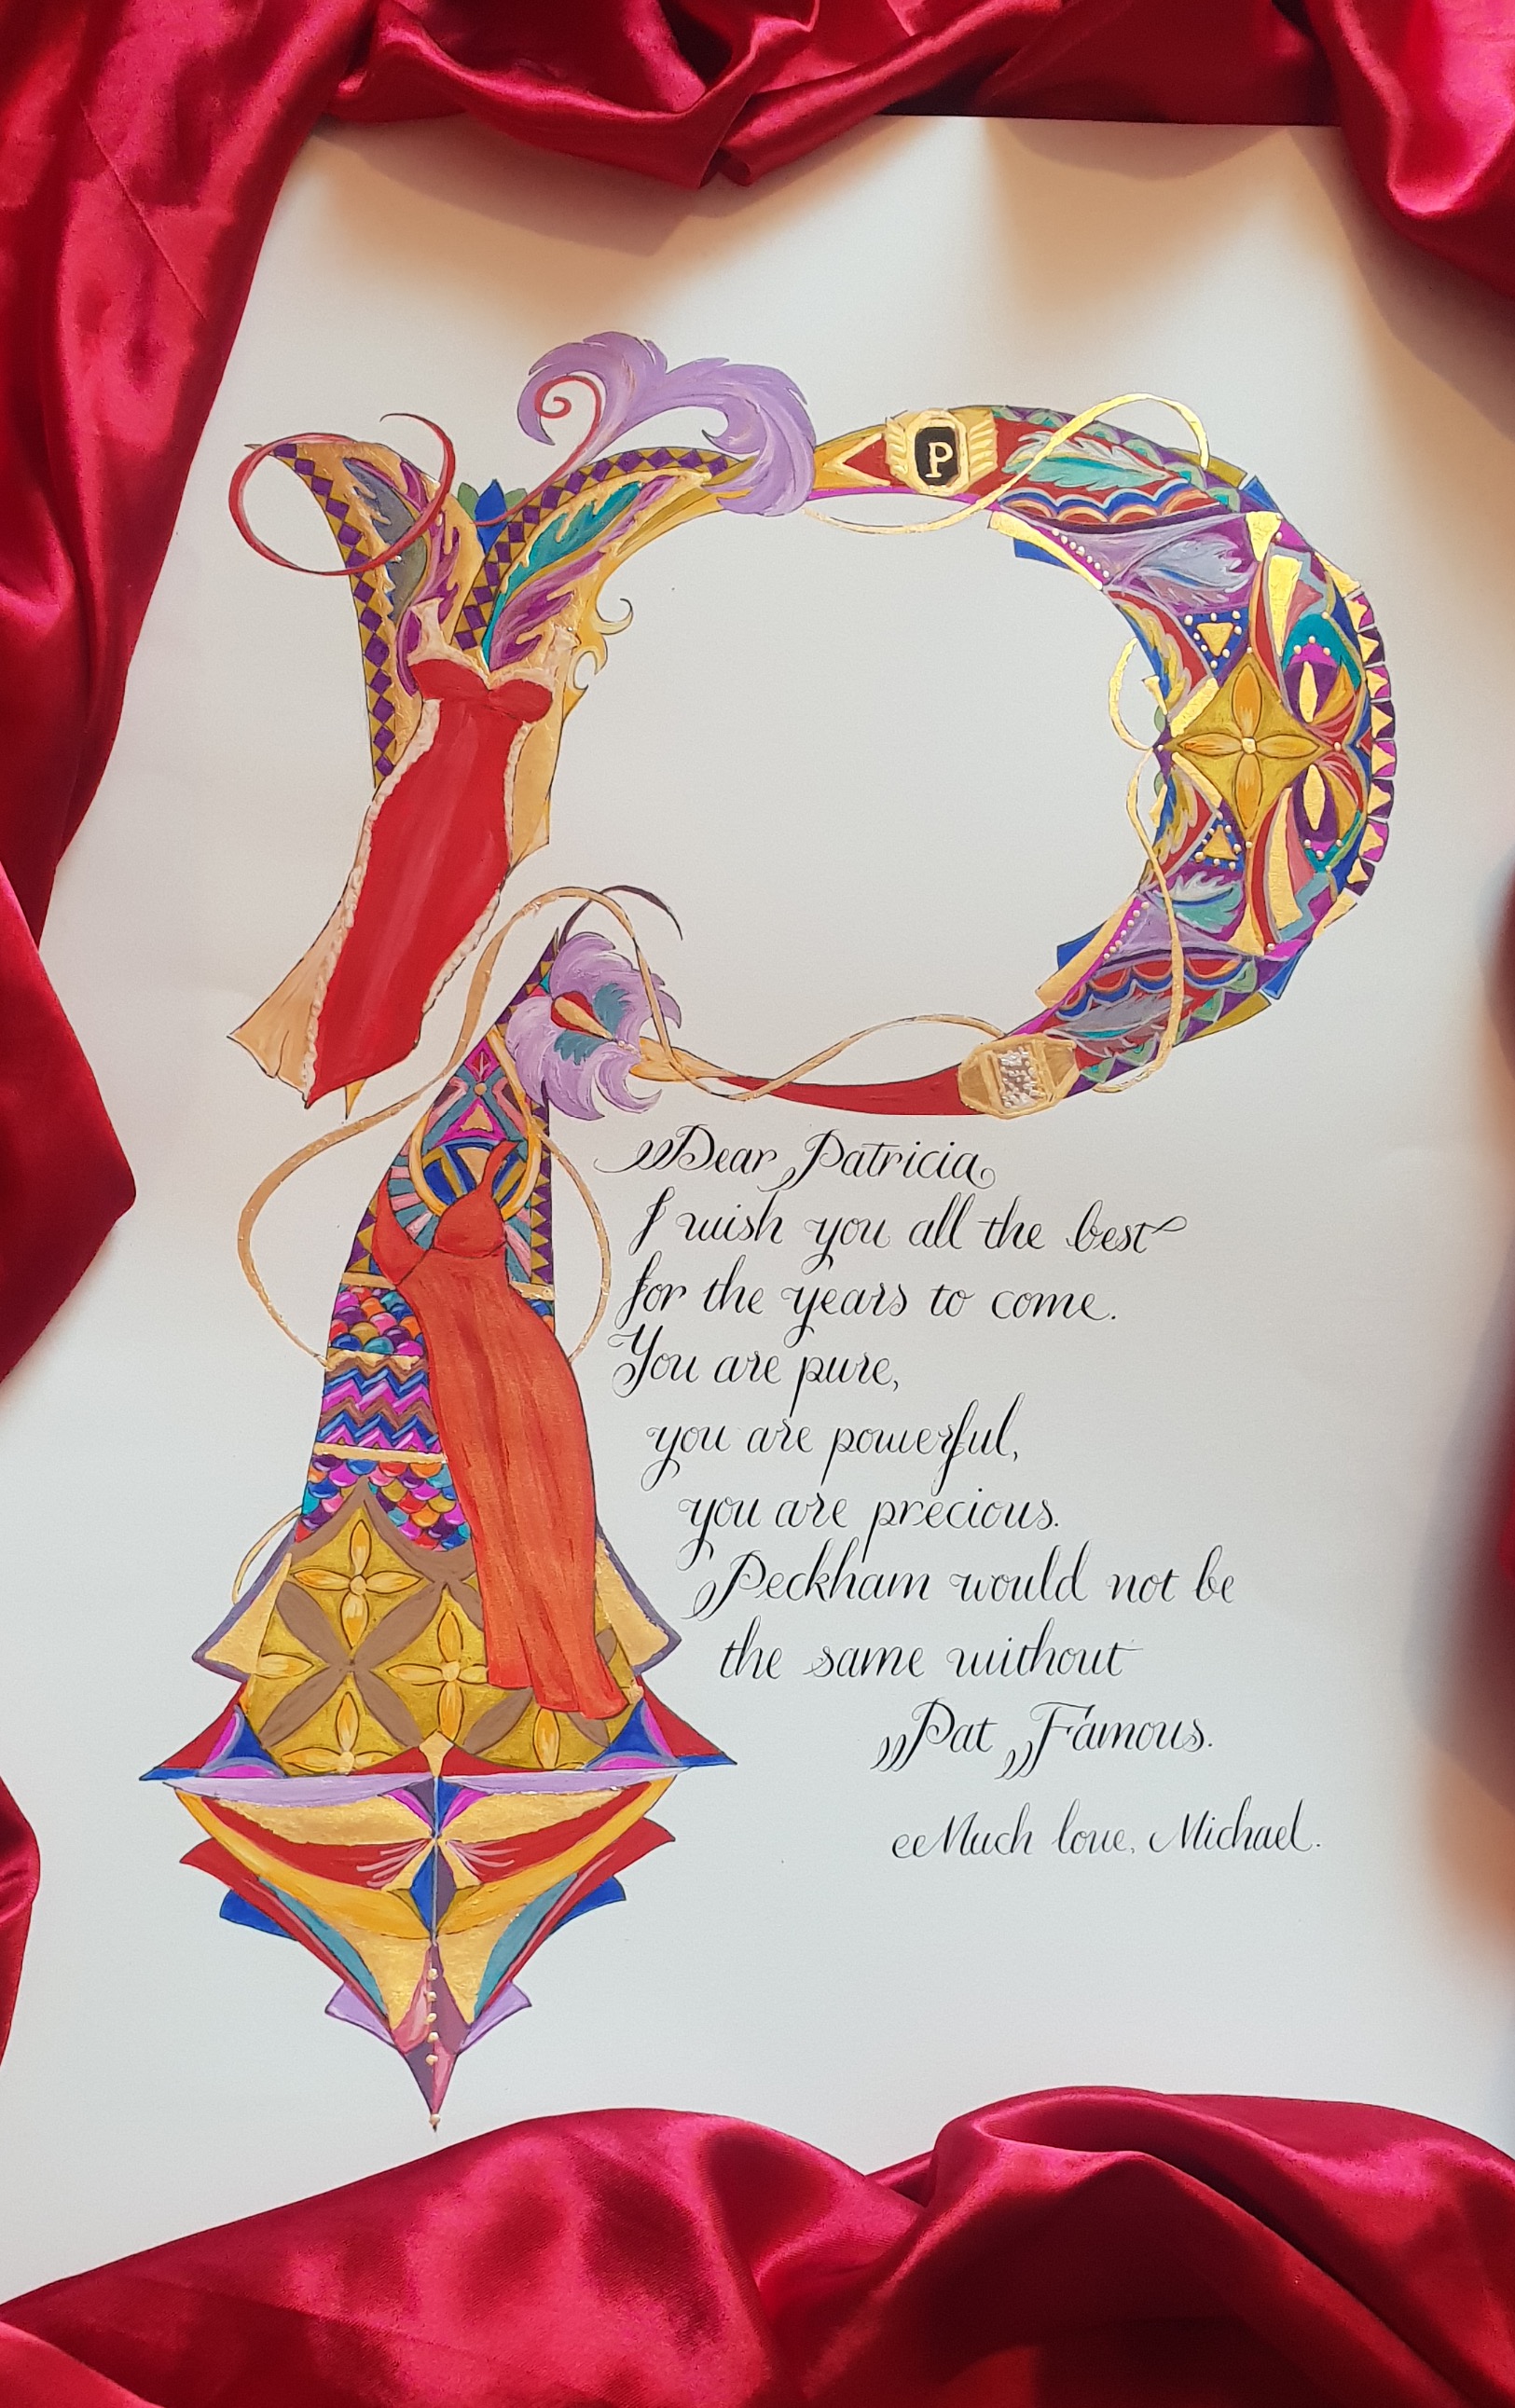 P
Dear Patricia
I wish you all the best
for the years to come.
You are pure,
you are powerful,
you are precious.
Peckham would not be
the same without
Pat Famous.
Much love, Michael.